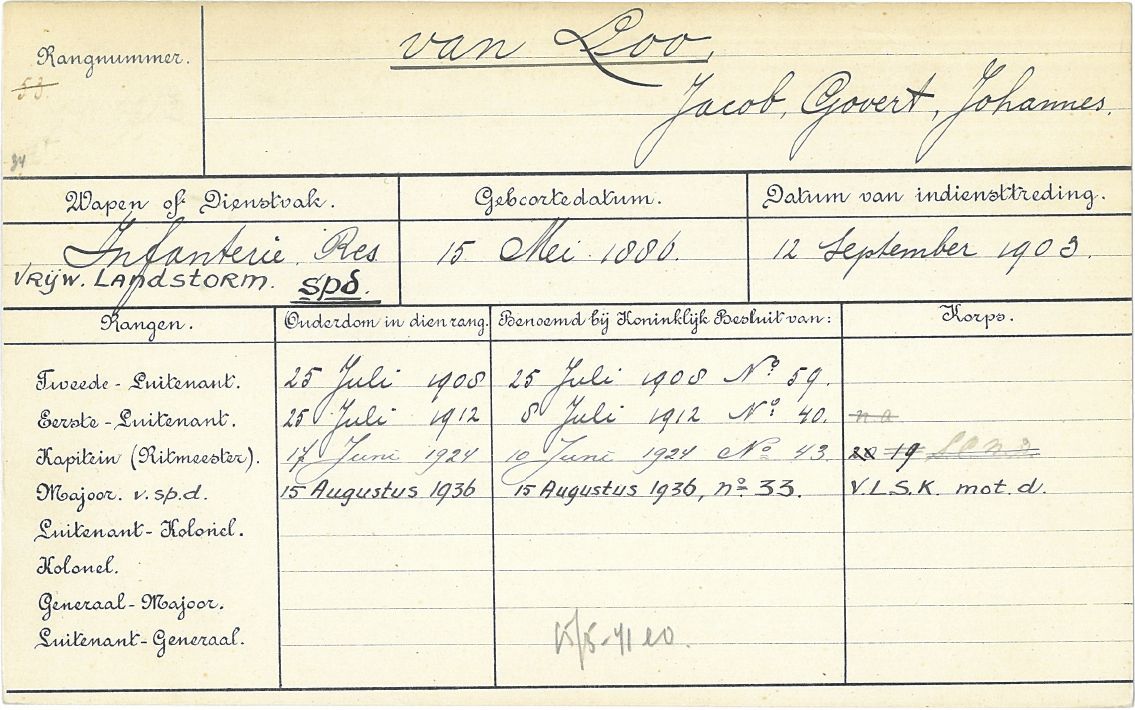 Rangnummer.
53.
34
van Loo,
Jacob, Govert, Johannes.
Wapen of Dienstvak.
Geboortedatum.
Datum van indiensttreding.
Infanterie. Res
VRIJW. LANDSTORM. spd.
15 Mei 1886.
12 September 1903.
Rangen.
Ouderdom in dien rang.
Benoemd bij Koninklijk Besluit van:
Korps.
Tweede-Luitenant. 25 Juli 1908 25 Juli 1908 No. 59.
Eerste-Luitenant. 25 Juli 1912 8 Juli 1912 No. 40. n.a
Kapitein (Ritmeester). 17 Juni 1924 10 Juni 1924 No. 43. 19
Majoor. v.sp.d. 15 Augustus 1936 15 Augustus 1936, no. 33. V.L.S.K. mot. d.
Luitenant-Kolonel.
Kolonel.
Generaal-Majoor.
Luitenant-Generaal.
15/5-41 eo.